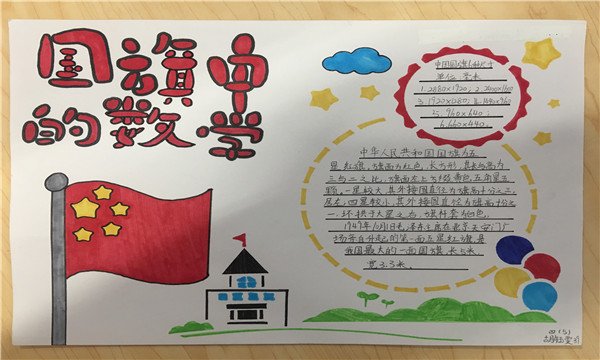 国旗中
的数学
中国国旗6种尺寸
单位:毫米
1.2880×1920; 2.2400×1600
3.1920×1280; 4.1440×960
5.960×640;
6.660×440.
中华人民共和国国旗为五
星红旗,旗面为红色,长方形,其长与高为
三与二之比,旗面左上方缀黄色五角星五
颗,一星较大,其外接圆直径为旗高十分之三,
居左,四星较小,其外接圆直径为旗高十分之
一,环拱于大星之右,旗杆套为白色。
1949年10月1日毛泽东主席在北京天安门广
场亲自升起的第一面五星红旗,是
我国最大的一面国旗,长5米,
宽3.3米.
四(5)
31